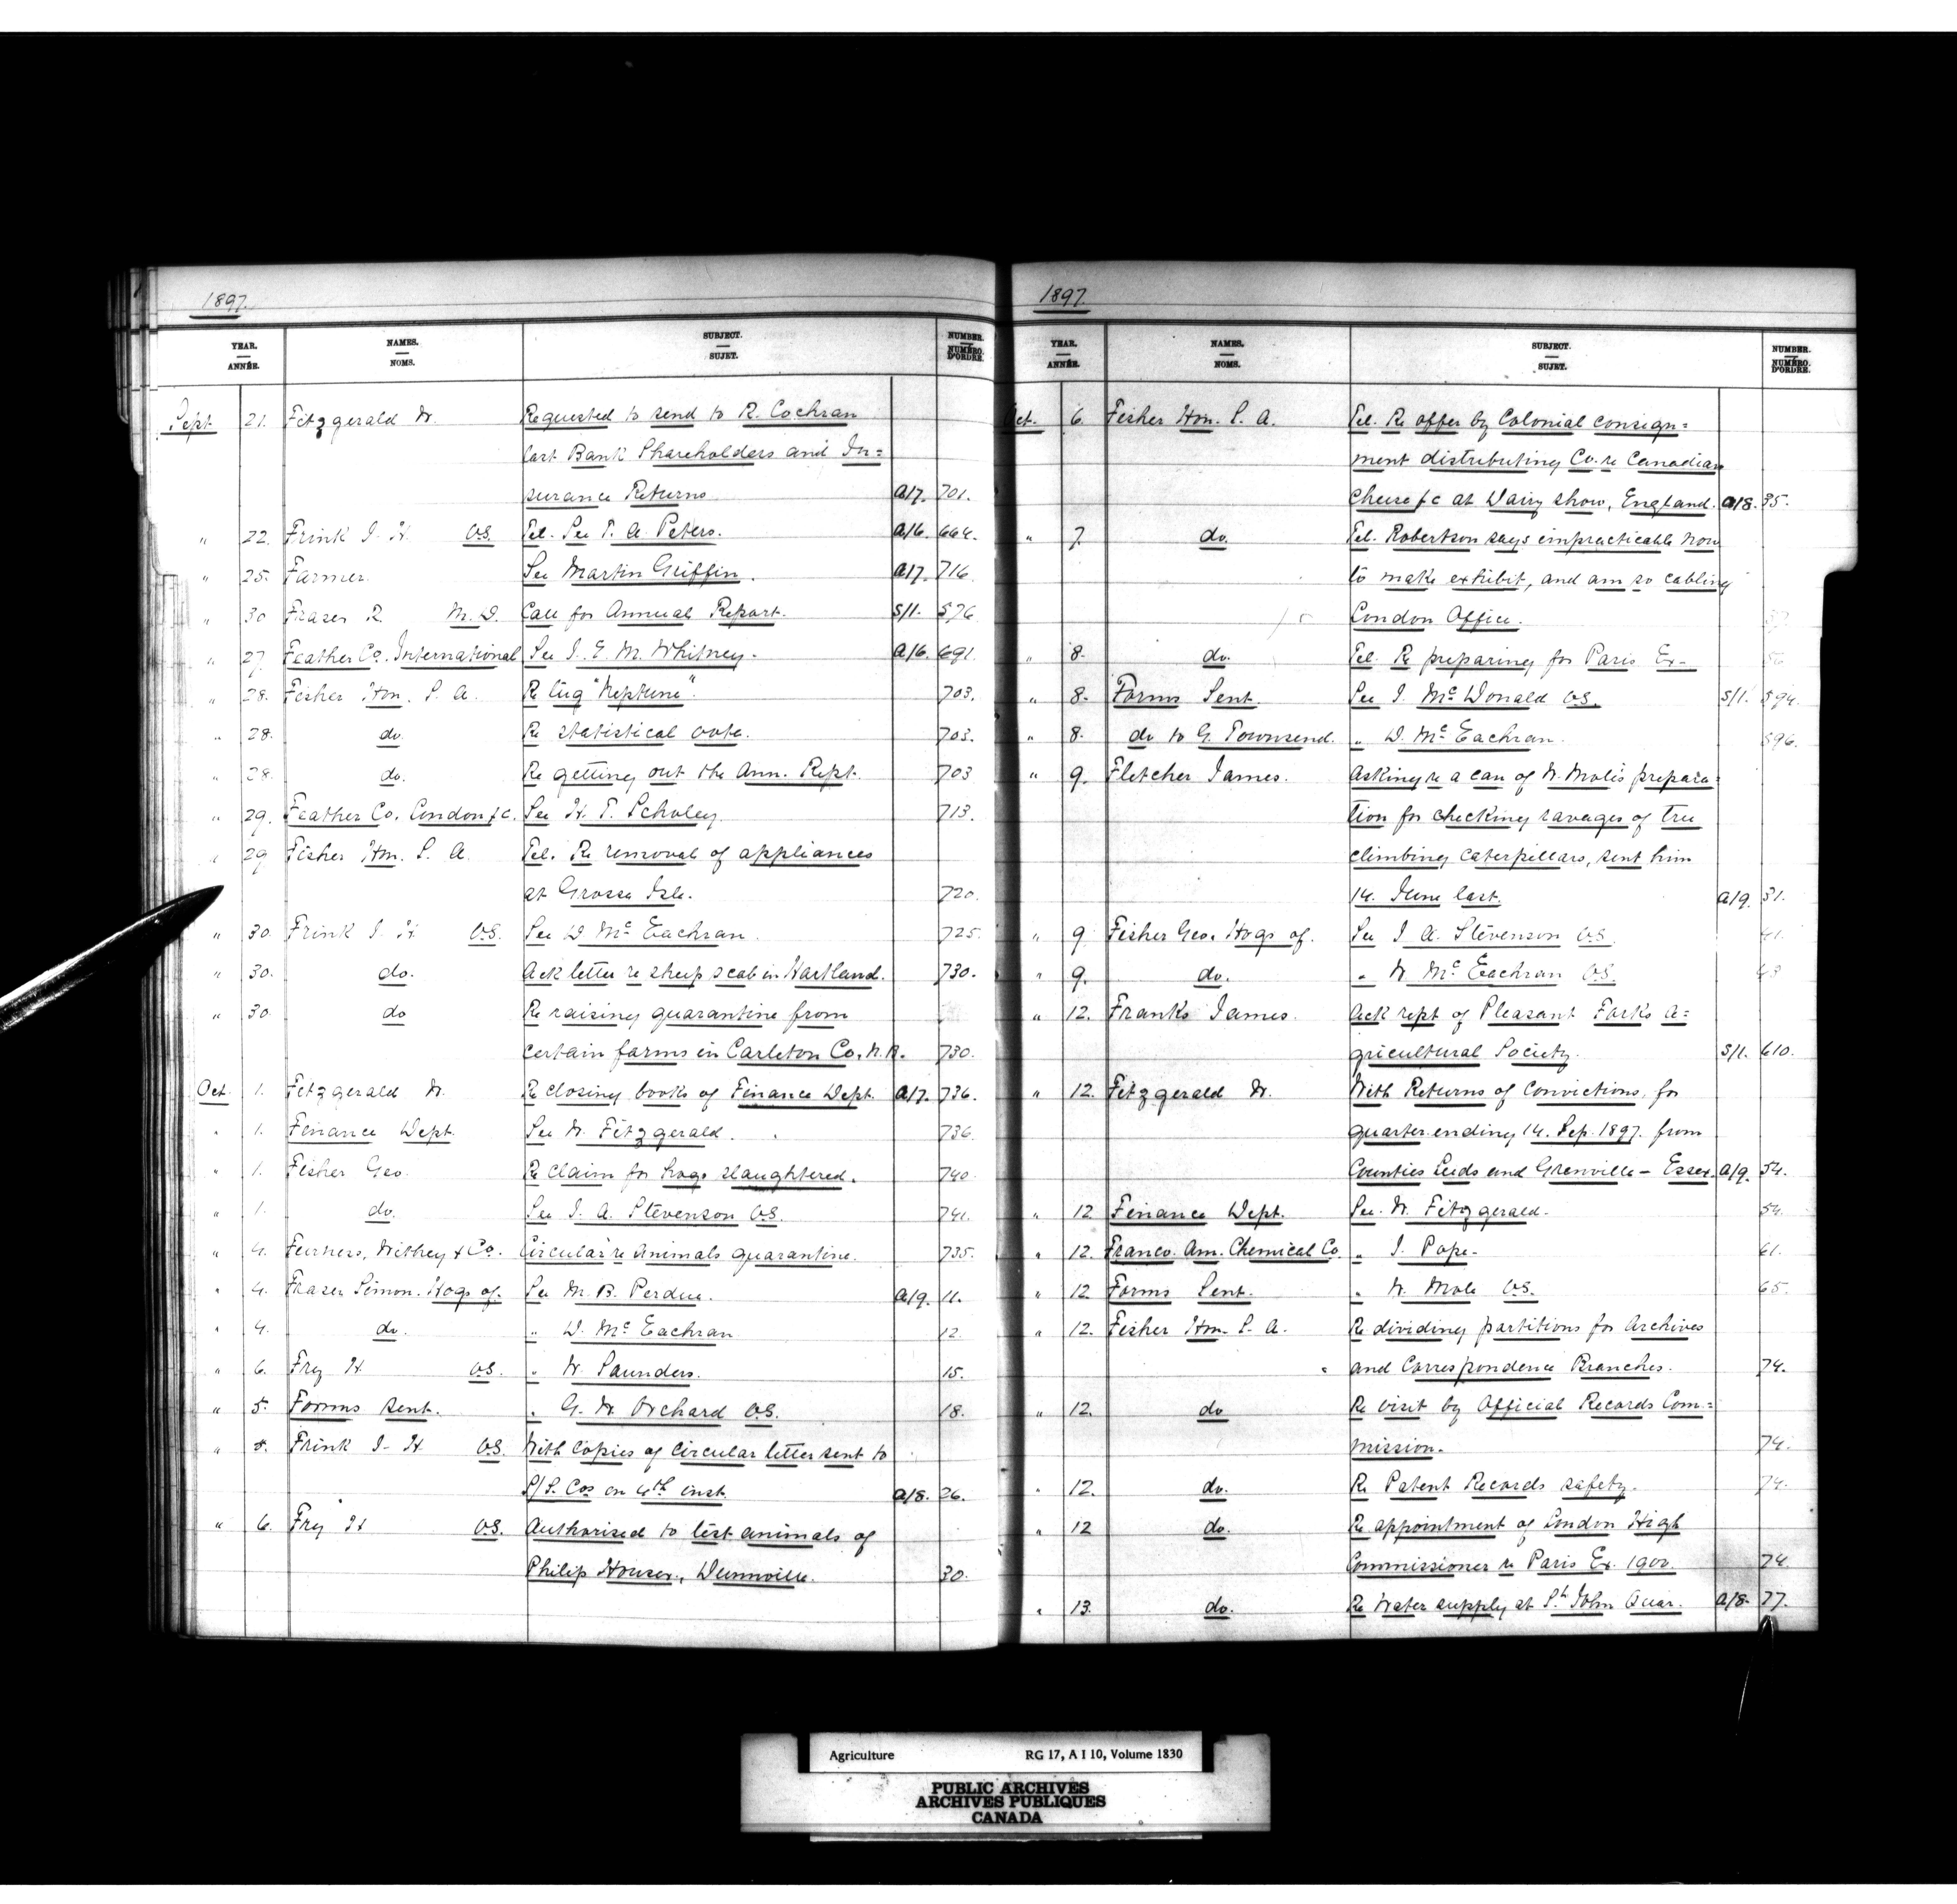 1897.
YEAR. ANNÉE. NAMES. NOMS. SUBJECT. SUJET. NUMBER. NUMÉRO. D'ORDRE.
Sept 21. Fitzgerald W. Requested to send to R. Cochran
last Bank Shareholders and In=
surance Returns a/7. 701.
" 22. Frink J. H. V.S. Tel. See T. A. Peters. a/6. 664.
" 25. Farmer. See Martin Griffin. a/7. 716
" 30 Fraser R. M.D. Call for Annual Report. S/1. 576
" 27 Feather Co. International See J. E. M. Whitney. a/6. 691.
" 28. Fisher Hon. S. A. Re tug "Neptune". 703.
" 28. do. Re statistical vote. 703.
" 28. do. Re getting out the Ann. Rept. 703
" 29. Feather Co. London &c. See H. T. Scholey. 713.
" 29 Fisher Hon. S. A. Tel. Re removal of appliances
at Grosse Isle. 720.
" 30. Frink J. H. V.S. See D McEachran. 725.
" 30. do. Ack letter re sheep scab in Hartland. 730.
" 30 do Re raising quarantine from
certain farms in Carleton Co, N.B. 730.
Oct. 1. Fitzgerald W. Re closing books of Finance Dept. a/7. 736.
" 1. Finance Dept. See W. Fitzgerald. 736
" 1. Fisher Geo. Re claim for hogs slaughtered. 740
" 1. do. See J. A. Stevenson V.S. 741.
" 4. Furness, Withey & Co. Circular re Animals quarantine. 735.
" 4. Fraser Simon. Hogs of. See M. B. Perdue. a/9. 11.
" 4. do. " D. McEachran 12.
" 6. Fry H. V.S. " W. Saunders. 15.
" 5. Forms sent. " G. W. Orchard V.S. 18.
" 5. Frink J. H V.S. With copies of circular letter sent to
S/S. Cos on 4th inst. a/8. 26.
" 6. Fry H V.S. Authorised to test animals of
Philip Houser, Dunnville. 30.
1897.
YEAR. ANNÉE. NAMES. NOMS. SUBJECT. SUJET. NUMBER. NUMÉRO. D'ORDRE.
Oct. 6. Fisher Hon. S. A. Tel. Re offer by Colonial consign=
ment distributing Co. re Canadian
cheese &c at Dairy show, England. a/8. 35.
" 7. do. Tel. Robertson says impracticable now
to make exhibit, and am so cabling
London Office. 37
" 8. do. Tel. Re preparing for Paris Ex-
" 8. Forms Sent. See J. McDonald V.S. S/1. 594.
" 8. do to G. Townsend. " D. McEachran. 596.
" 9. Fletcher James. Asking re a can of W. Mole's prepara=
tion for checking ravages of tree
climbing caterpillars, sent him
14. June last. a/9. 31.
" 9. Fisher Geo. Hogs of. See J A. Stevenson V.S. 41.
" 9. do. " W McEachran V.S. 43
" 12. Franks James. Ack rept of Pleasant Forks A=
gricultural Society. S/1. 610.
" 12. Fitzgerald W. With Returns of Convictions, for
quarter ending 14. Sep. 1897. from
Counties Leeds and Grenville - Essex. a/9. 54.
" 12. Finance Dept. See. W. Fitzgerald. 54.
" 12. Franco. Am. Chemical Co. " J. Pope. 61.
" 12. Forms Sent. " W. Mole V.S. 65.
" 12. Fisher Hon. S. A. Re dividing partitions for Archives
and Correspondence Branches. 74.
" 12. do Re visit by Official Records Com=
mission. 74.
" 12. do. Re Patent Records safety. 74.
" 12 do. Re appointment of London High
Commissioner re Paris Ex. 1900. 74
" 13. do. Re Water supply at St. John Quar. a/8. 77.
Agriculture RG 17, A I 10, Volume 1830
PUBLIC ARCHIVES
ARCHIVES PUBLIQUES
CANADA